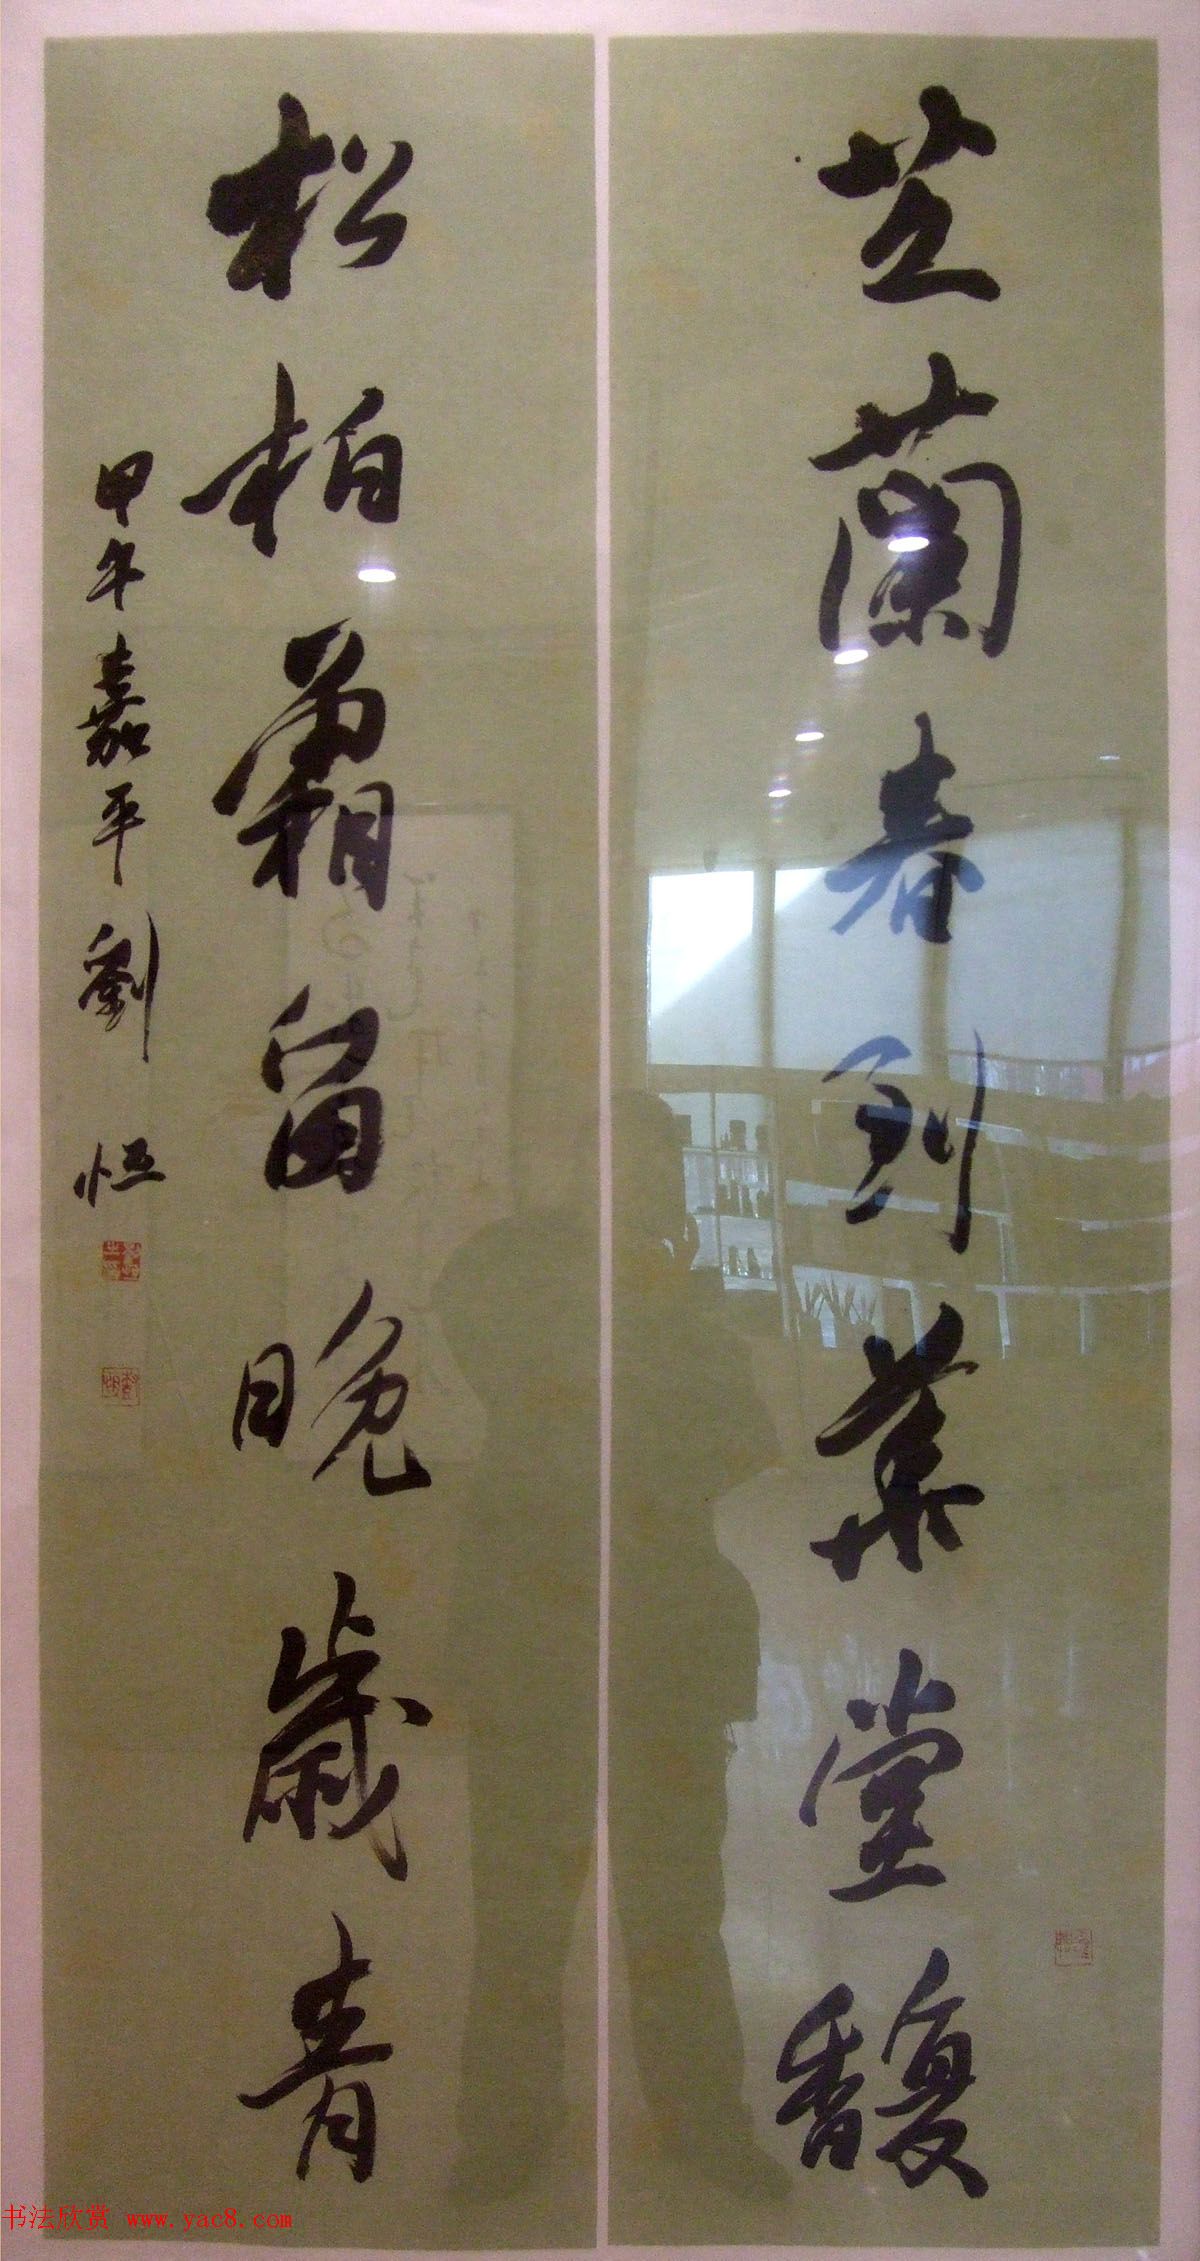 芝蘭春到華堂馥
松柏霜留晚歲青
甲午嘉平劉恒
书法欣赏 www.yac8.com